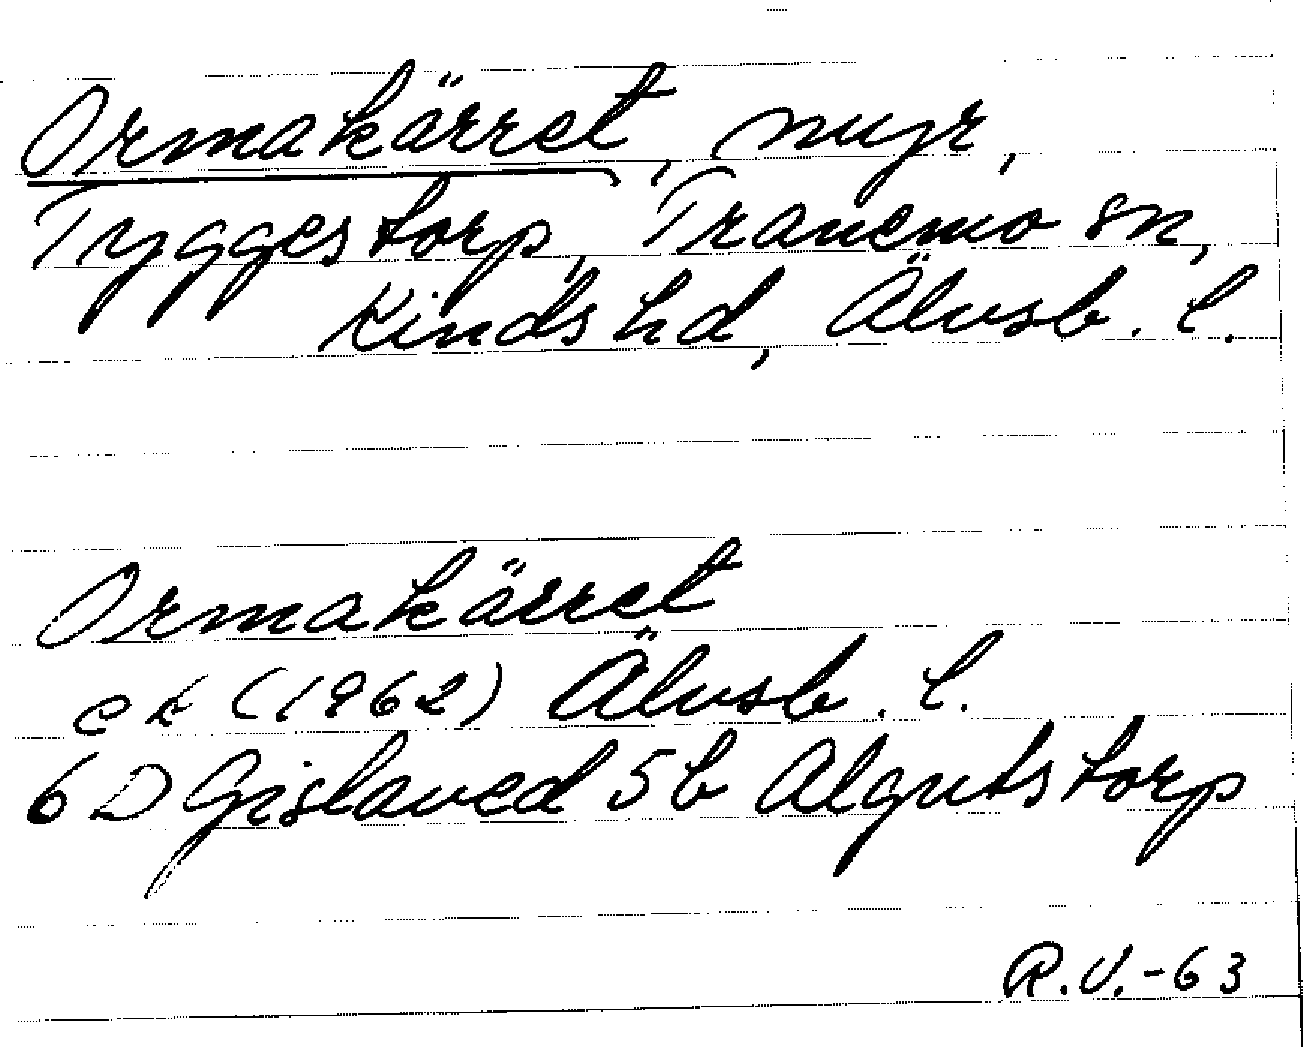 Ormakärret, myr,
Tyggestorp, Tranemo sn,
Kinds hd, Älvsb. l.
Ormakärret
ek (1962) Älvsb. l.
6 D Gislaved 5 b Algutstorp
R.V.-63